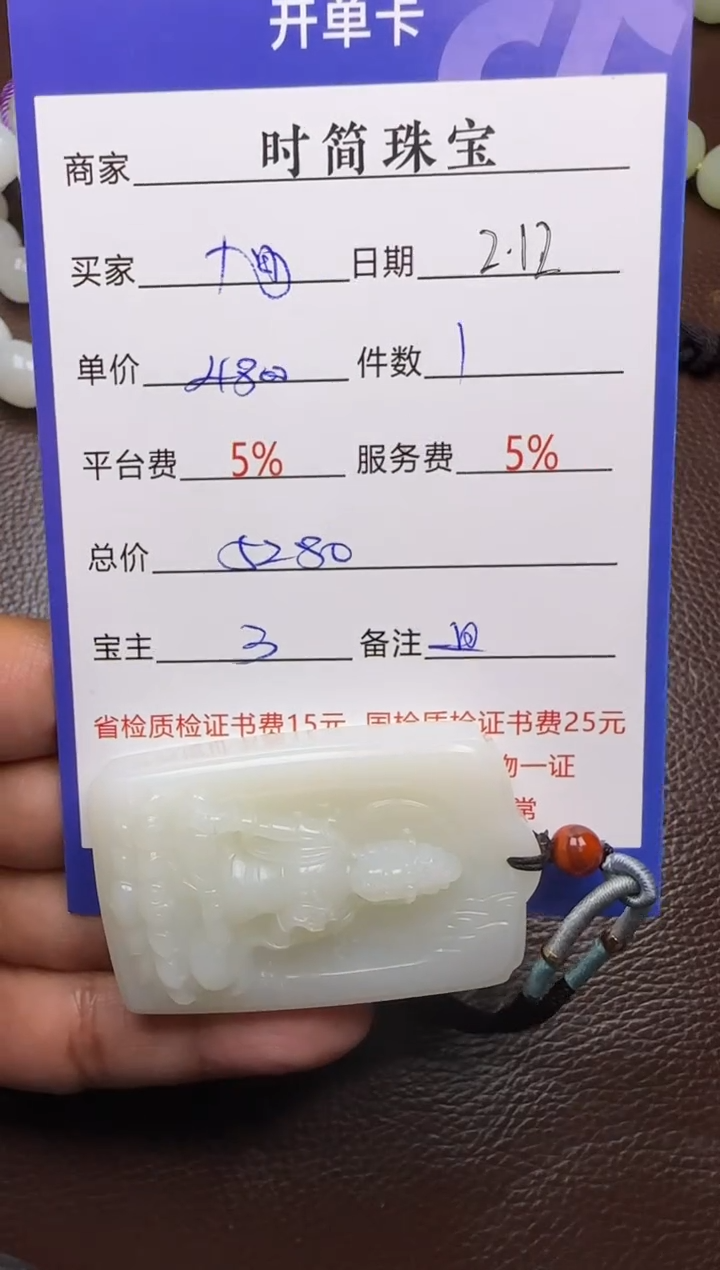 开单卡
商家 时简珠宝
买家 日期 2.12
单价 4800 件数 1
平台费 5% 服务费 5%
总价 5280
宝主 3 备注
省检质检证书费15元 国检质检证书费25元
物一证
常